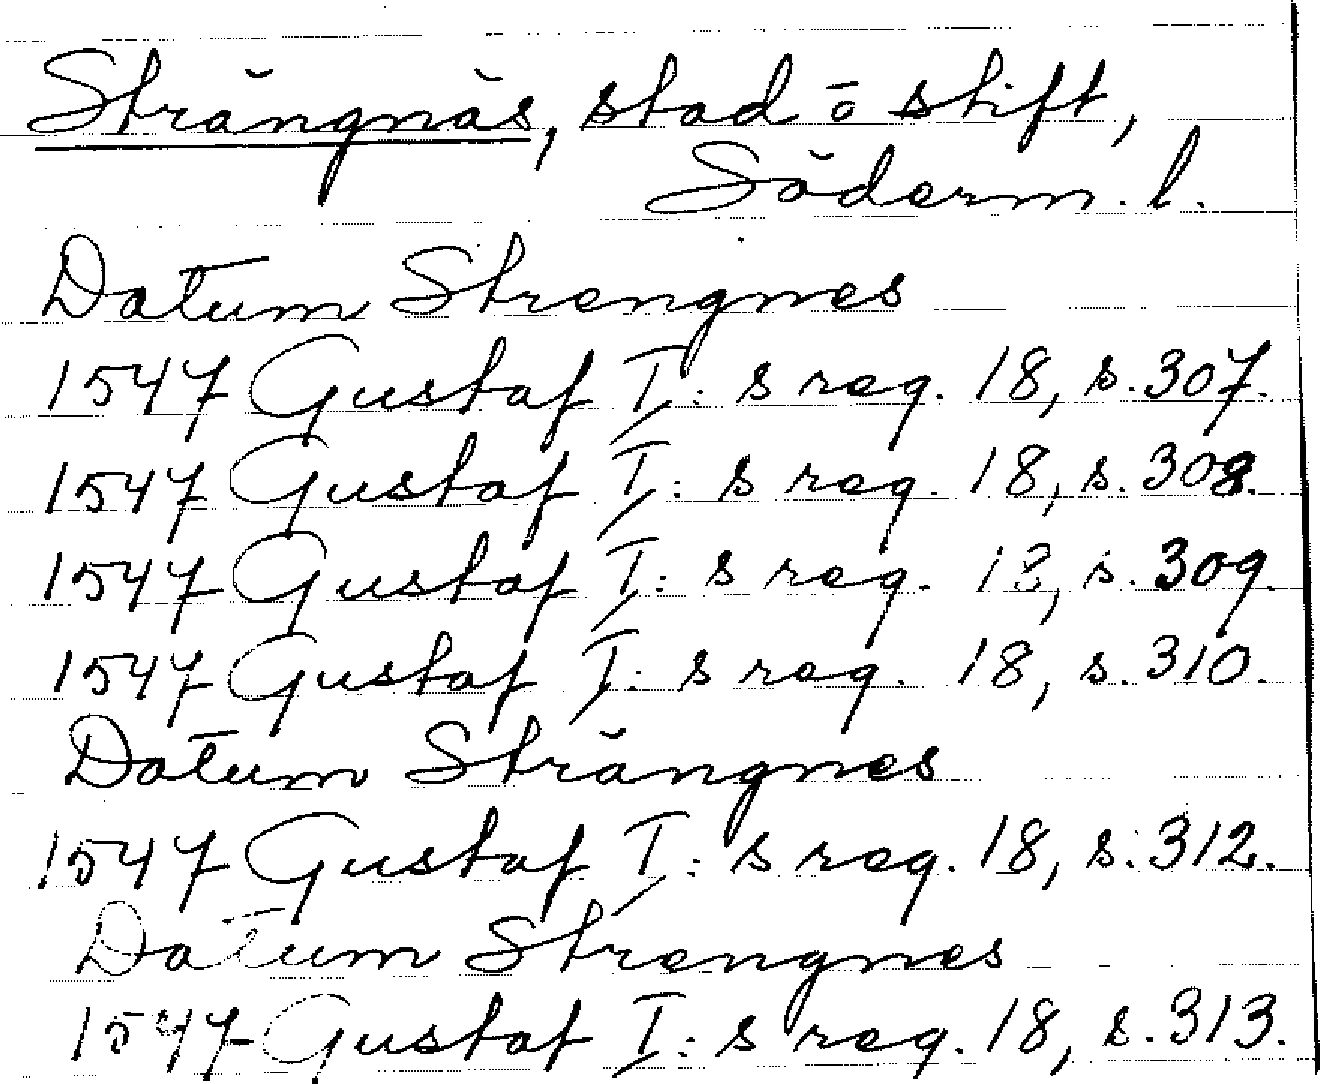 Strängnäs, stad o stift,
Söderm. l.
Datum Strengnes
1547 Gustaf I:s reg. 18, s. 307.
1547 Gustaf I:s reg. 18, s. 308.
1547 Gustaf I:s reg. 18, s. 309.
1547 Gustaf I:s reg. 18, s. 310.
Datum Strängnes
1547 Gustaf I:s reg. 18, s. 312.
Datum Strengnes
1547 Gustaf I:s reg. 18, s. 313.